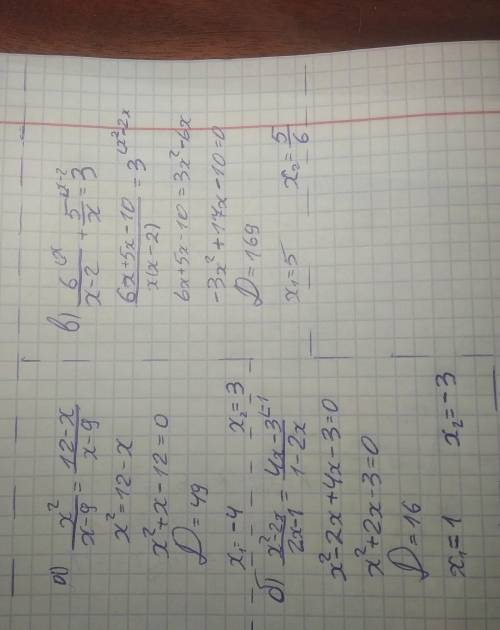 а) x²/(x-9) = (12-x)/(x-9)
x² = 12-x
x²+x-12=0
D=49
x₁=-4 x₂=3
б) (x²-2x)/(2x-1) = (4x-3)/(1-2x) ⁽⁻¹
x²-2x+4x-3=0
x²+2x-3=0
D=16
x₁=1 x₂=-3
в) 6/(x-2) ⁽ˣ + 5/x ⁽ˣ⁻² = 3
(6x+5x-10)/(x(x-2)) = 3 ⁽ˣ²⁻²ˣ
6x+5x-10=3x²-6x
-3x²+17x-10=0
D=169
x₁=5 x₂=5/6